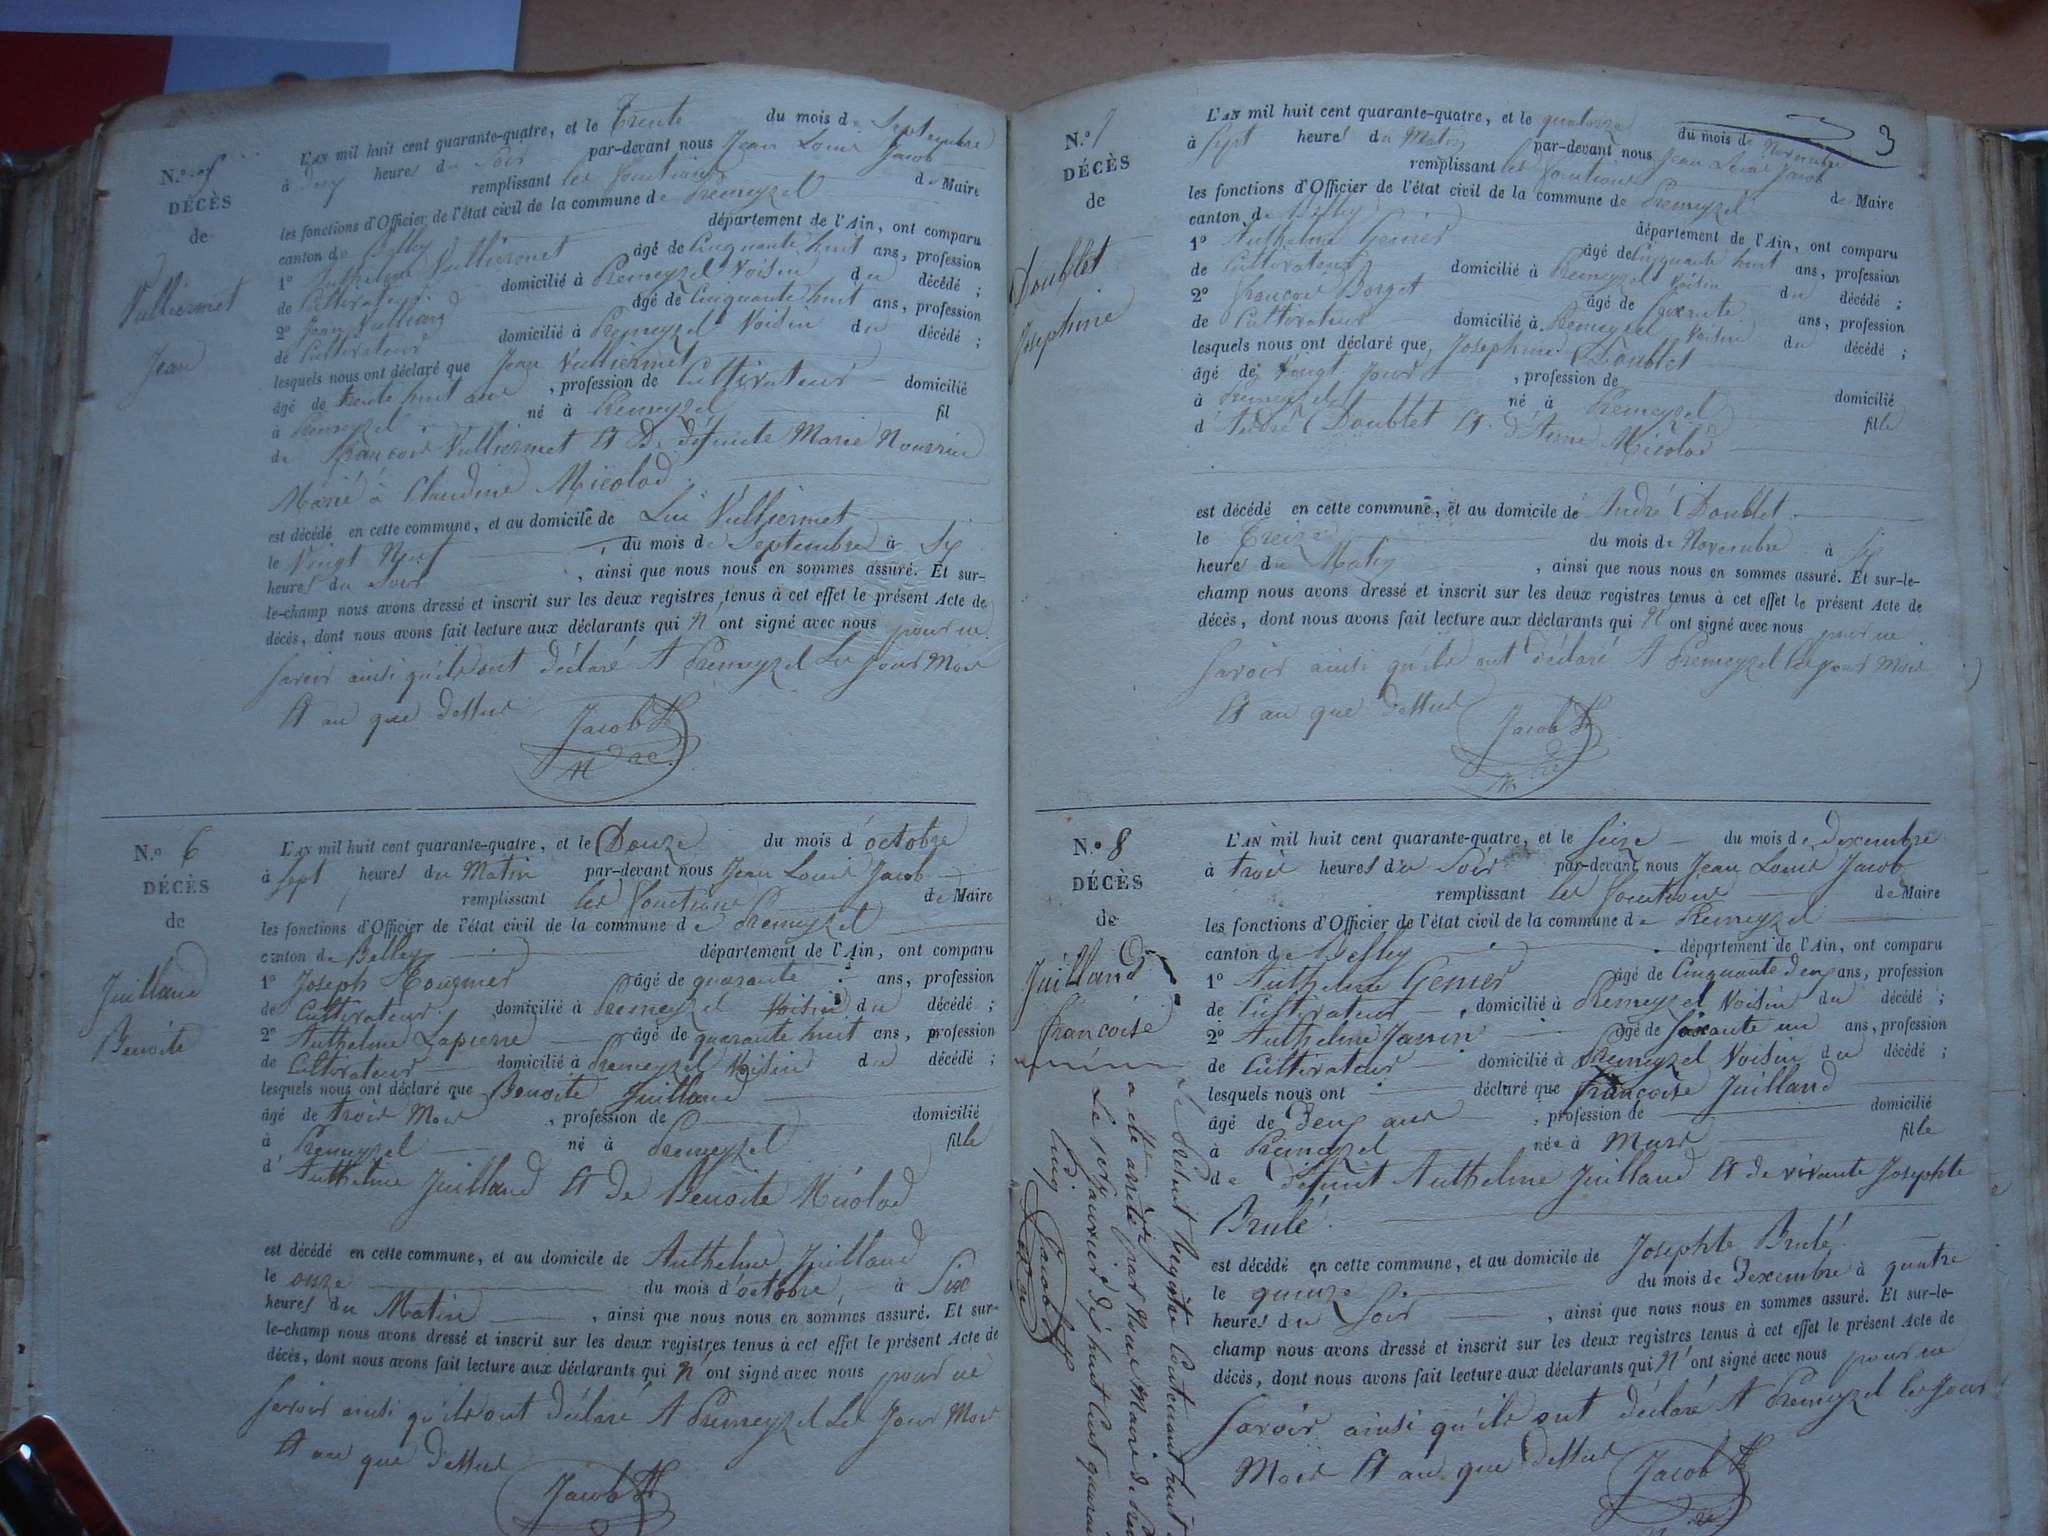 N.º 5
DÉCÈS
de
Vulliermet
Jean
L'AN mil huit cent quarante-quatre, et le Trente du mois de Septembre
à Dix heures du Soir par-devant nous Jean Louis Jacob
remplissant les fonctions de Maire
les fonctions d'Officier de l'état civil de la commune de Premeyzel
canton de Belley département de l'Ain, ont comparu
1º Anthelme Vulliermet âgé de Cinquante huit ans, profession
de Cultivateur domicilié à Premeyzel Voisin du décédé ;
2º Jean Vulliard âgé de Cinquante huit ans, profession
de Cultivateur domicilié à Premeyzel Voisin du décédé ;
lesquels nous ont déclaré que Jean Vulliermet
âgé de trente huit ans , profession de Cultivateur domicilié
à Premeyzel né à Premeyzel fil
de François Vulliermet Et De défunte Marie
Marié à Claudine Micolod
est décédé en cette commune, et au domicile de Lui Vulliermet
le Vingt Neuf , du mois de Septembre à Six
heures du Soir , ainsi que nous nous en sommes assuré. Et sur-
le-champ nous avons dressé et inscrit sur les deux registres tenus à cet effet le présent Acte de
décès, dont nous avons fait lecture aux déclarants qui N' ont signé avec nous pour ne
Savoir ainsi qu'ils ont déclaré A Premeyzel Les Jour Mois
Et an que Dessus
Jacob
N.º 6
DÉCÈS
de
Juilland
Benoite
L'AN mil huit cent quarante-quatre, et le Douze du mois d'octobre
à Sept heures du Matin par-devant nous Jean Louis Jacob
remplissant les fonctions de Maire
les fonctions d'Officier de l'état civil de la commune de Premeyzel
canton de Belley département de l'Ain, ont comparu
1º Joseph âgé de quarante ans, profession
de Cultivateur domicilié à Premeyzel Voisin du décédé ;
2º Anthelme Lapierre âgé de quarante huit ans, profession
de Cultivateur domicilié à Premeyzel Voisin du décédé ;
lesquels nous ont déclaré que Benoite Juilland
âgé de trois Mois , profession de domicilié
à Premeyzel né à Premeyzel fille
d' Anthelme Juilland Et De Benoite Micolod
est décédé en cette commune, et au domicile de Anthelme Juilland
le onze du mois d'octobre, à Six
heures du Matin , ainsi que nous nous en sommes assuré. Et sur-
le-champ nous avons dressé et inscrit sur les deux registres tenus à cet effet le présent Acte de
décès, dont nous avons fait lecture aux déclarants qui N' ont signé avec nous pour ne
Savoir ainsi qu'ils ont déclaré A Premeyzel Les Jour Mois
Et an que Dessus
Jacob
3
N.º 7
DÉCÈS
de
Doublet
Josephine
L'AN mil huit cent quarante-quatre, et le quatorze du mois de Novembre
à Sept heures du Matin par-devant nous Jean Louis Jacob
remplissant les fonctions de Maire
les fonctions d'Officier de l'état civil de la commune de Premeyzel
canton de Belley département de l'Ain, ont comparu
1º Anthelme Genier âgé de Cinquante huit ans, profession
de Cultivateur domicilié à Premeyzel Voisin du décédé ;
2º François Borget âgé de Soixante ans, profession
de Cultivateur domicilié à Premeyzel Voisin du décédé ;
lesquels nous ont déclaré que Josephine Doublet
âgé de Vingt Jours , profession de domicilié
à Premeyzel né à Premeyzel fille
d'André Doublet Et d'Anne Micolod
est décédé en cette commune, et au domicile de André Doublet
le Treize du mois de Novembre à Six
heures du Matin , ainsi que nous nous en sommes assuré. Et sur-le-
champ nous avons dressé et inscrit sur les deux registres tenus à cet effet le présent Acte de
décès, dont nous avons fait lecture aux déclarants qui N' ont signé avec nous pour ne
Savoir ainsi qu'ils ont déclaré A Premeyzel les jour Mois
Et an que Dessus
Jacob
N.º 8
DÉCÈS
de
Juilland
françoise
L'AN mil huit cent quarante-quatre, et le Seize du mois de Dexembre
à trois heures du Soir par-devant nous Jean Louis Jacob
remplissant les fonctions de Maire
les fonctions d'Officier de l'état civil de la commune de Premeyzel
canton de Belley département de l'Ain, ont comparu
1º Anthelme Genier âgé de Cinquante Deux ans, profession
de Cultivateur , domicilié à Premeyzel Voisin du décédé ;
2º Anthelme Janin âgé de Soixante un ans, profession
de Cultivateur domicilié à Premeyzel Voisin du décédé ;
lesquels nous ont déclaré que françoise Juilland
âgé de Deux ans , profession de domicilié
à Premeyzel née à Murs fille
de Défunt Anthelme Juilland Et de vivante Josephte
Brulé.
est décédé en cette commune, et au domicile de Josephte Brulé
le quinze du mois de Dexembre à quatre
heures du Soir , ainsi que nous nous en sommes assuré. Et sur-le-
champ nous avons dressé et inscrit sur les deux registres tenus à cet effet le présent Acte de
décès, dont nous avons fait lecture aux déclarants qui N' ont signé avec nous pour ne
Savoir ainsi qu'ils ont déclaré A Premeyzel les Jour
Mois Et an que Dessus
Jacob
Le Présent Registre Contenant huit
a été arrêté par Nous Maire de
Le 1er Janvier Dix huit Cent quarante
Cinq Jacob